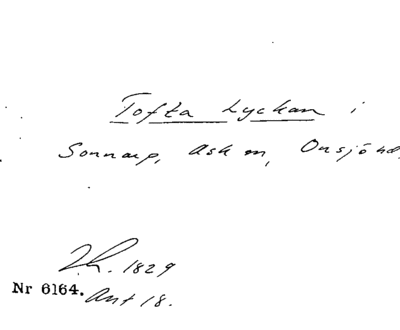 Tofta Lyckan i
Sonnarp, Ask sn, Onsjö hd.
Lh. 1829
Nr 6164. Ant 18.